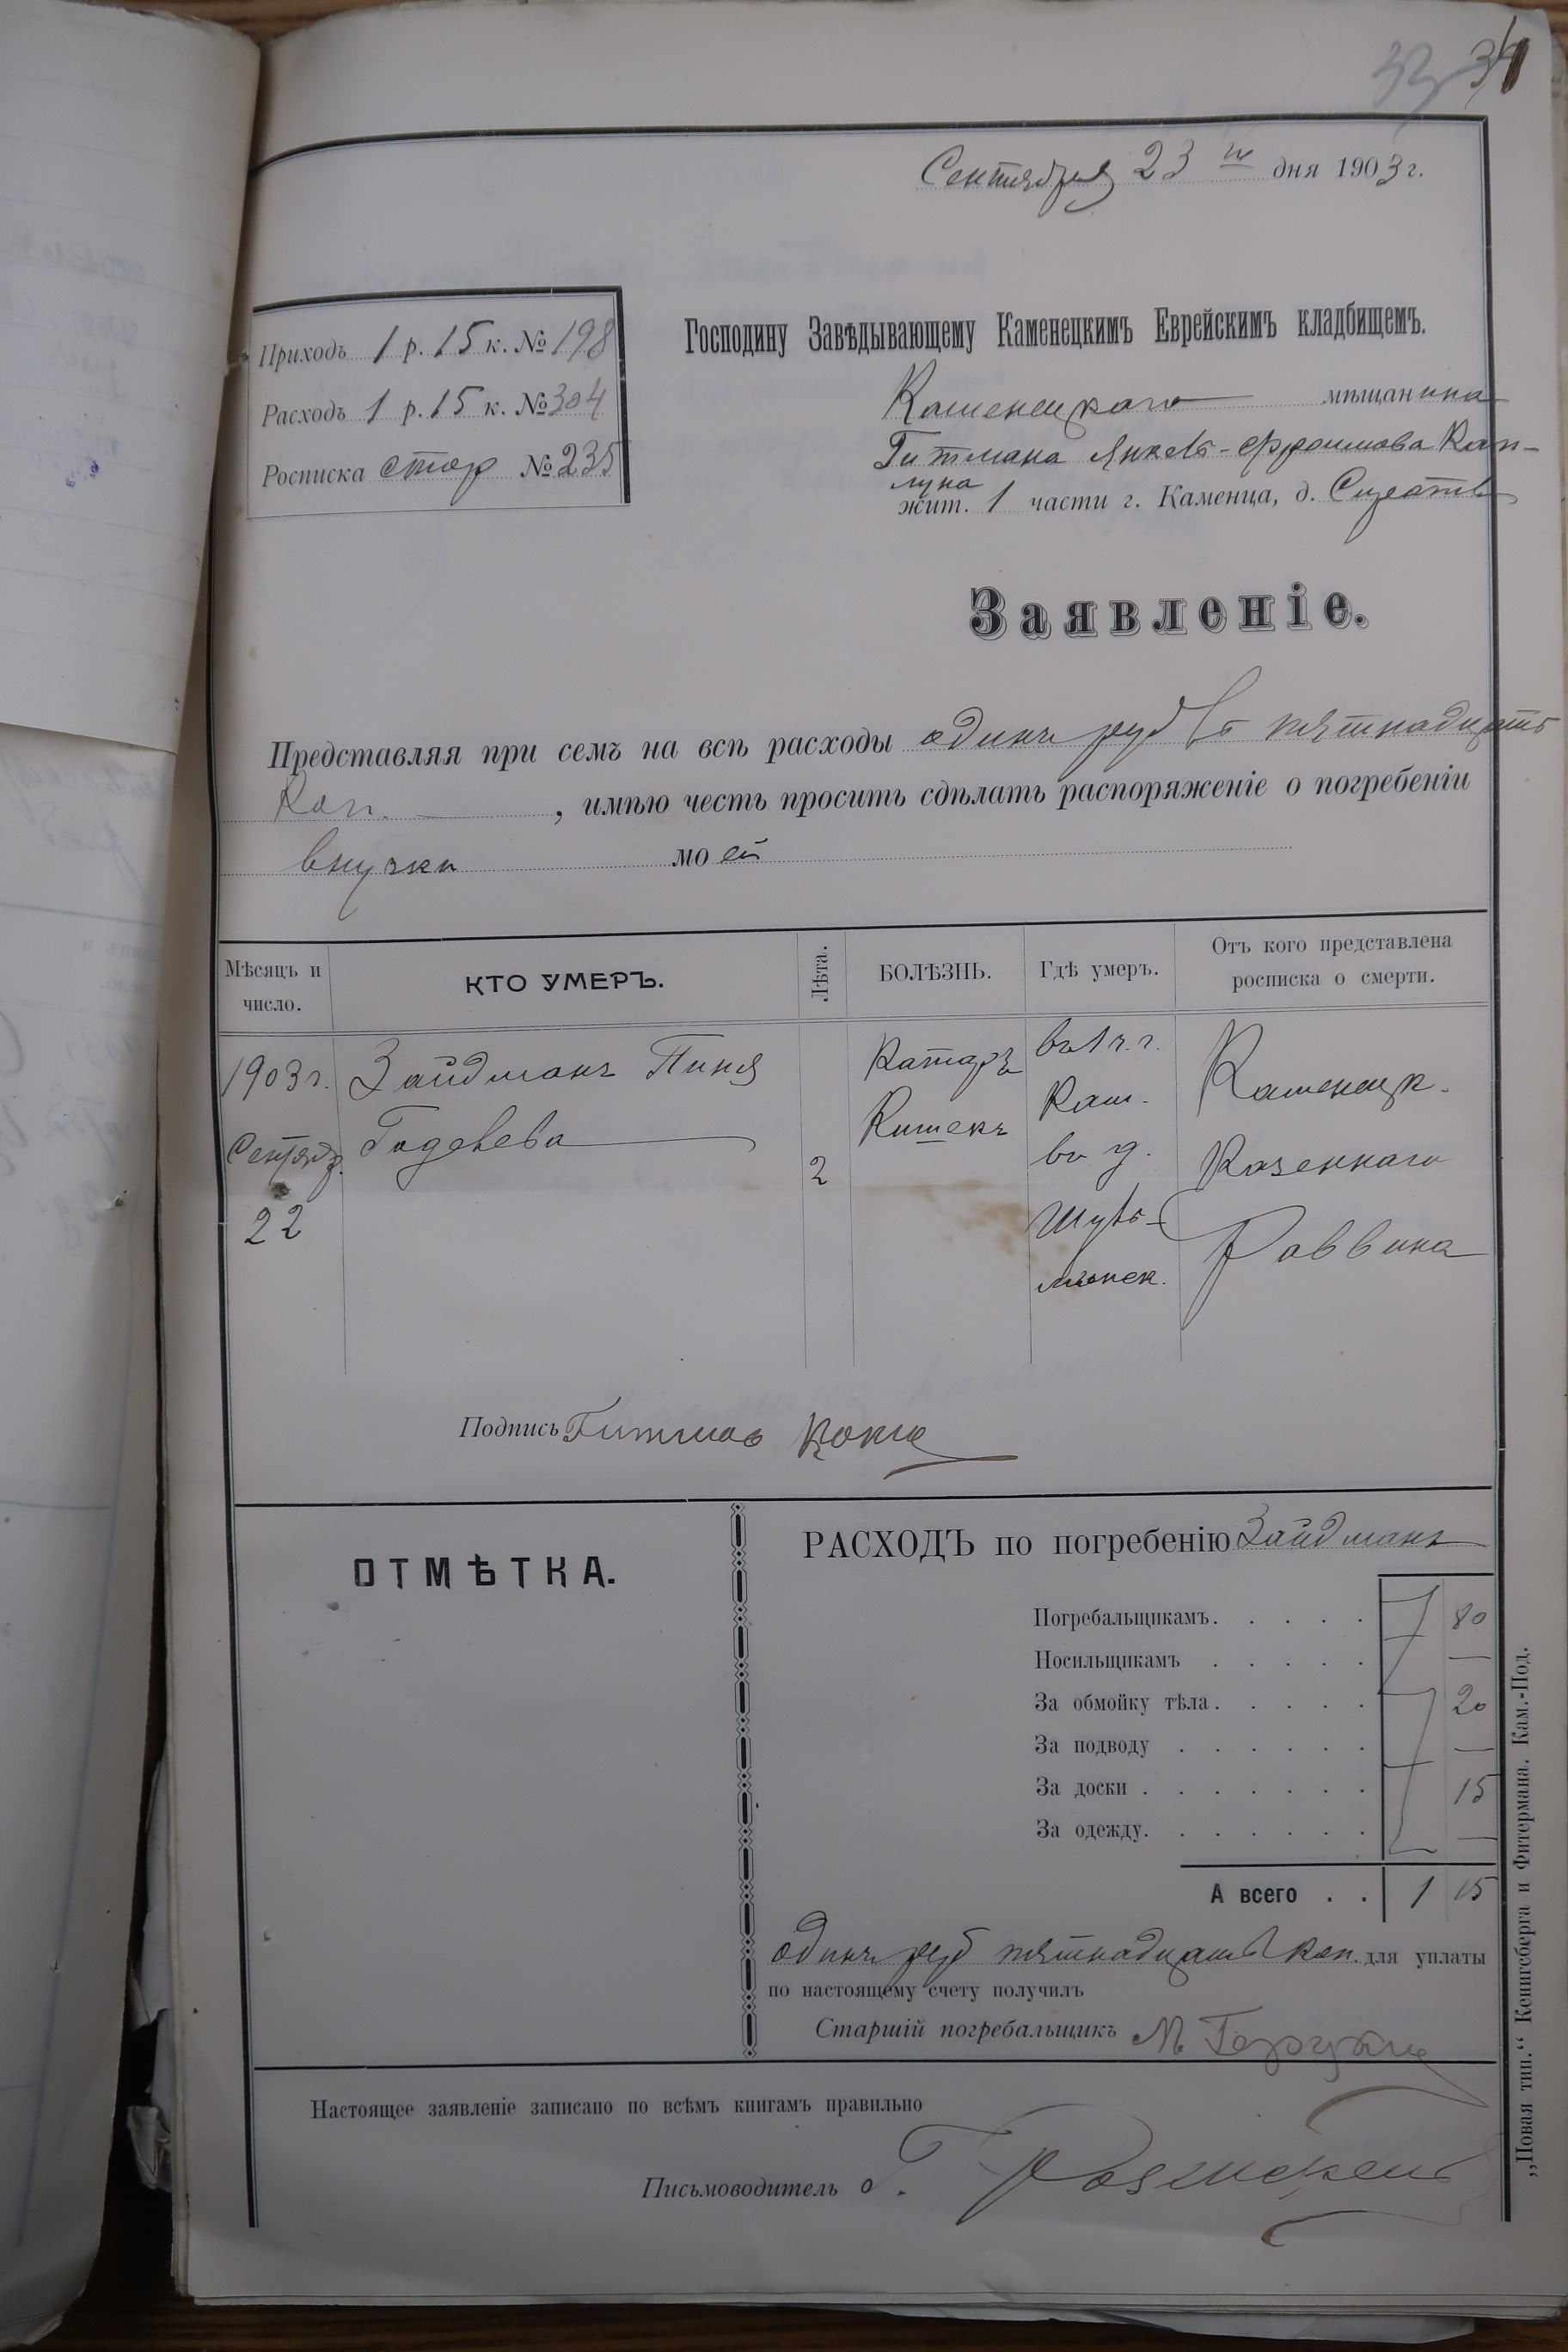 33 34
Сентября 23 го дня 1903 г.
Приходъ 1 р. 15 к. № 198
Расходъ 1 р. 15 к. № 304
Росписка стар № 235
Господину Завѣдывающему Каменецкимъ Еврейскимъ кладбищемъ.
Каменецкаго мѣщанина
Гитмана Янкель-Фроимова Кап-
луна
жит. 1 части г. Каменца, д.
Заявленіе.
Представляя при семъ на всѣ расходы одинъ руб пятнадцать
Коп. , имѣю честь просить сдѣлать распоряженіе о погребеніи
внучки моей
Мѣсяцъ и число.
КТО УМЕРЪ.
Лѣта.
БОЛѢЗНЬ.
Гдѣ умеръ.
Отъ кого представлена росписка о смерти.
1903 г. Сентяб. 22
Зайдманъ Пиня
2
Катаръ Кишекъ
въ 1 ч. г. Кам. въ д.
Каменецк. Казеннаго Раввина
Подпись Гитман
ОТМѢТКА.
РАСХОДЪ по погребенію Зайдманъ
Погребальщикамъ. . . . . 80
Носильщикамъ . . . . . —
За обмойку тѣла. . . . . 20
За подводу . . . . . . —
За доски . . . . . . . 15
За одежду. . . . . . . —
А всего . . 1 15
одинъ руб пятнадцать коп. для уплаты
по настоящему счету получилъ
Старшій погребальщикъ М
Настоящее заявленіе записано по всѣмъ книгамъ правильно
Письмоводитель
„Новая тип.“ Кенигсберга и Фитермана. Кам.-Под.